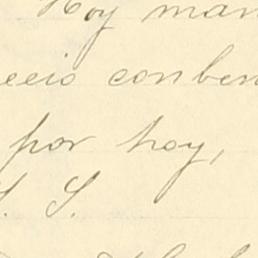 Hoy man
eeio conben
por hoy,
S. S.